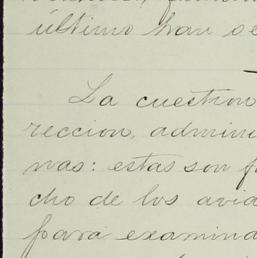 último han se
La cuestion
reccion, admini
nas: estas son f
cho de los avia
para examina